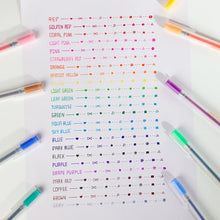 RED
GOLDEN RED
CORAL PINK
LIGHT PINK
PINK
STRAWBERRY RED
ORANGE
APRICOT YELLOW
LIGHT GREEN
LEAF GREEN
TURQUOISE
GREEN
AQUA BLUE
SKY BLUE
BLUE
DARK BLUE
BLACK
PURPLE
GRAPE PURPLE
DARK RED
COFFEE
BROWN
GRAY